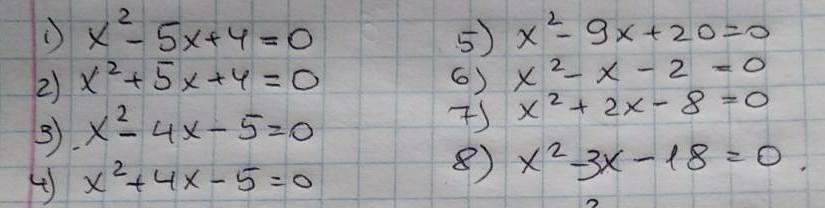 1) x² - 5x + 4 = 0
2) x² + 5x + 4 = 0
3) x² - 4x - 5 = 0
4) x² + 4x - 5 = 0
5) x² - 9x + 20 = 0
6) x² - x - 2 = 0
7) x² + 2x - 8 = 0
8) x² - 3x - 18 = 0.